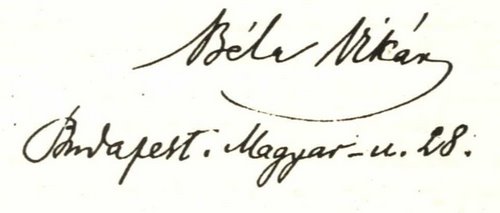 Béla Vikár
Budapest. Magyar-u. 28.